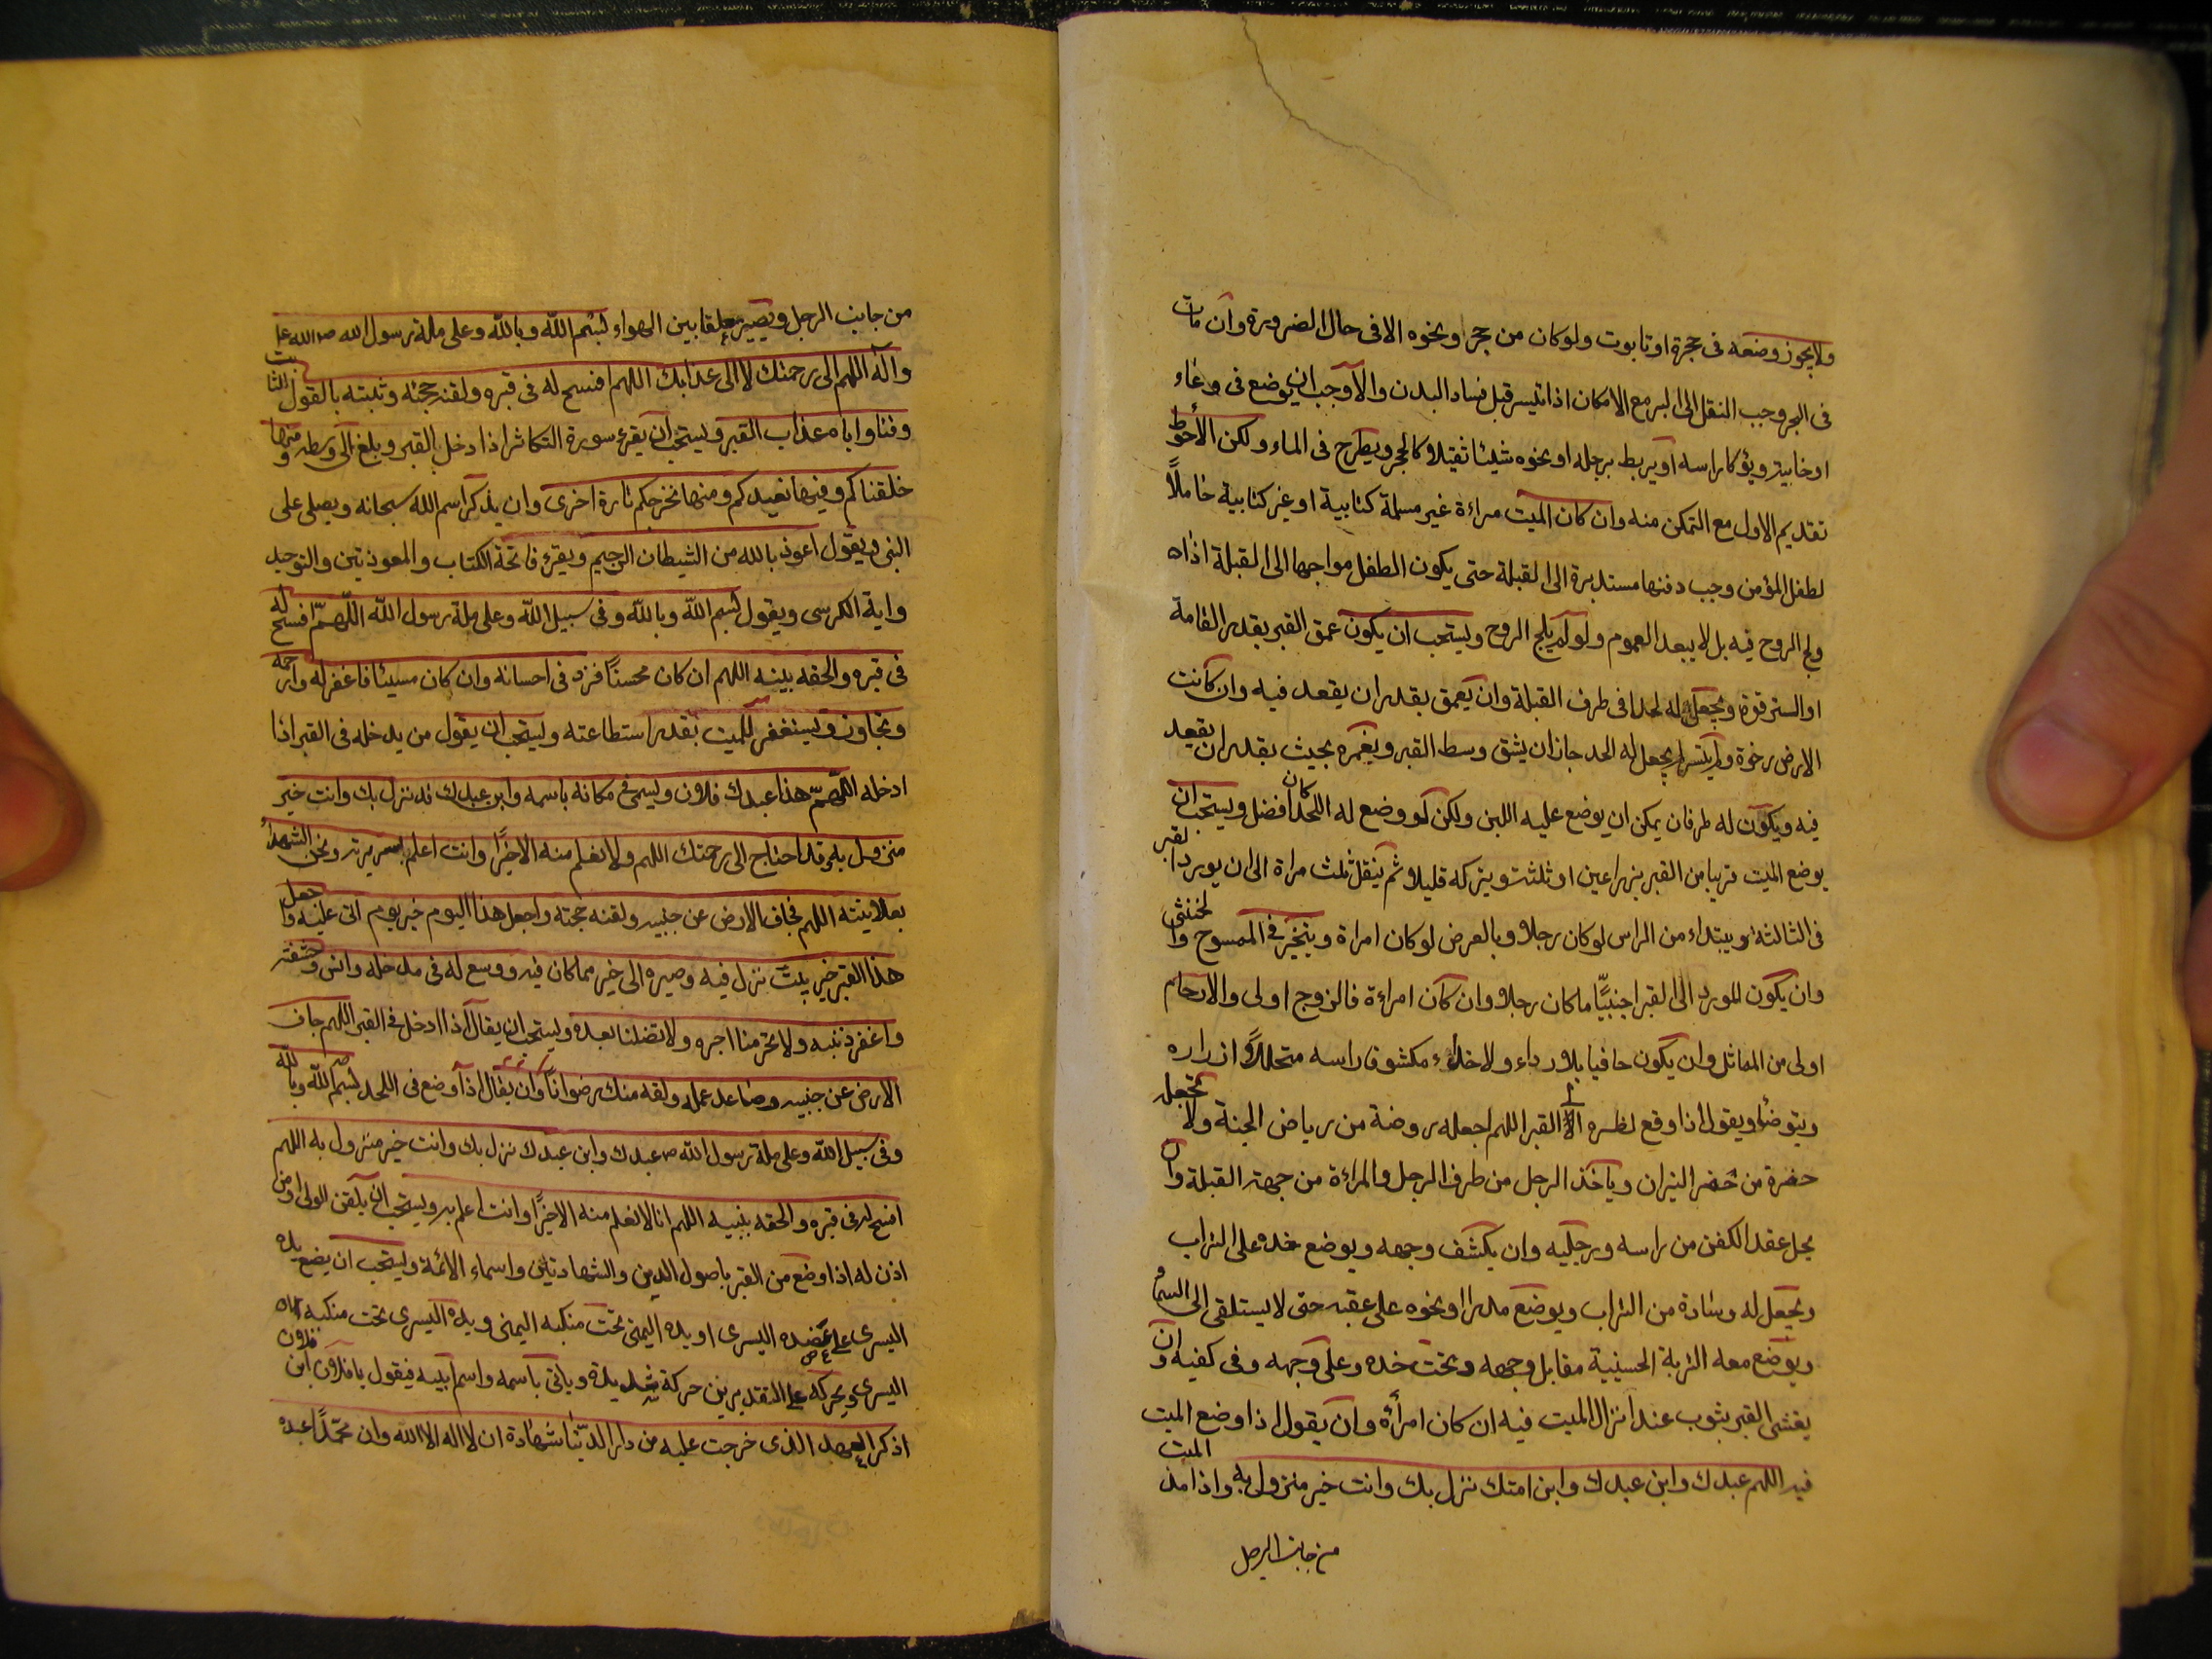 ولا يجوز وضعه فى حجرة او تابوت ولو كان من حجر او نحوه الا فى حال الضرورة وان مات
فى البحر وجب النقل الى البر مع الامكان اذا تيسر قبل فساد البدن والا وجب ان يوضع فى وعاء
او خابية ويؤكا راسه او يربط برجله او نحوه شيئا ثقيلا كالحجر ويطرح فى الماء ولكن الأحوط
تقديم الاول مع التمكن منه وان كان الميت مراءة غير مسلمة كتابية او غير كتابية حاملاً
لطفل المؤمن وجب دفنها مستدبرة الى القبلة حتى يكون الطفل مواجها الى القبلة اذا
ولج الروح فيه بل لا يبعد العموم ولو لم يلج الروح ويستحب ان يكون عمق القبر بقدر القامة
او الى الترقوة ويجعل له لحدا فى طرف القبلة وان يعمق بقدر ان يقعد فيه وان كانت
الارض رخوة ولم يتسر ان يجعل له الحد جاز ان يشق وسط القبر ويغمره بحيث بقدر ان يقعد
فيه ويكون له طرفان يمكن ان يوضع عليه اللبن ولكن لو وضع له اللحد كان افضل ويستحب ان
يوضع الميت قريبا من القبر بزراعين او ثلثة ويتركه قليلا ثم ينقل ثلث مراة الى ان يورد القبر
فى الثالثة ويبتداء من الراس لو كان رجلا وبالعرض لو كان امراة ويتخير فى الممسوح والخنثى
وان يكون المورد الى القبر اجنبيّا ما كان رجلا وان كان امراءة فالزوج اولى والارحام
اولى من المماثل وان يكون حافيا بلا رداء ولا خذاء مكشوفا راسه متحللاً ازراره
ويتوضئا ويقول اذا وقع نظره الى القبر اللهم اجعله روضة من رياض الجنة ولا تجعله
حفرة من حفر النيران وياخذ الرجل من طرف الرجل والمراءة من جهة القبلة وان
يحل عقد الكفن من راسه ورجليه وان يكشف وجهه ويوضع خده على التراب
ويجعل له وسادة من التراب ويوضع مدرا او نحوه على عقبه حتى لا يستلقى الى السماء
ويوضع معه التربة الحسينية مقابل وجهه وتحت خده وعلى وجهه وفى كفيه وان
يغشى القبر بثوب عند انزال الميت فيه ان كان امرأة وان يقول اذا وضع الميت
فيه اللهم عبدك وابن عبدك وابن امتك نزل بك وانت خير منزول به واذا مد الميت
من جانب الرجل
من جانب الرجل ويصير معلقا بين الهواء بسم الله وبالله وعلى ملة رسول الله صلى الله عل
واله اللهم الى رحمتك لا الى عذابك اللهم افسح له فى قبره ولقنه حجته وثبته بالقول الثابت
وقنا واياه عذاب القبر ويستحب ان يقرء سورة التكاثر اذا دخل القبر وبلغ الى وسطه ومنها
خلقناكم وفيها نعيدكم ومنها نخرجكم تارة اخرى وان يذكر اسم الله سبحانه ويصلى على
النبى ويقول اعوذ بالله من الشيطان الرجيم ويقرء فاتحة الكتاب والمعوذتين والتوحيد
واية الكرسى ويقول بسم الله وبالله وفى سبيل الله وعلى ملة رسول الله اللّهمّ افسح له
فى قبره والحقه بنبيه اللهم ان كان محسناً فزد فى احسانه وان كان مسيئا فاغفر له وارحمه
وتجاوز ويستغفر للميت بقدر استطاعته ويستحب ان يقول من يدخله فى القبر اذا
ادخله اللّهمّ هذا عبدك فلان ويسمى فى مكانه باسمه وابن عبدك قد نزل بك وانت خير
منزول به وقد احتاج الى رحمتك اللهم ولا نعلم منه الا خيرًا وانت اعلم بسريرته ونحن الشهداء
بعلانيته اللهم فجاف الارض عن جنبيه ولقنه حجته واجعل هذا اليوم خير يوم اتى عليه واجعل
هذا القبر خير بيت نزل فيه وصيره الى خير مما كان فيه ووسع له فى مدخله وانس وحشته
واغفر ذنبه ولا تحرمنا اجره ولا تضلنا بعده ويستحب ان يقال اذا ادخل فى القبر اللهم جاف
الارض عن جنبيه وصاعد عمله ولقه منك رضوانًا وان يقال اذا وضع فى اللحد بسم الله وبالله
وفى سبيل الله وعلى ملة رسول الله ص عبدك وابن عبدك نزل بك وانت خير منزول به اللهم
افسح له فى قبره والحقه بنبيه اللهم انا لا نعلم منه الا خيرًا وانت اعلم به ويستحب ان يلقن الولى او من
اذن له اذا وضع من القبر باصول الدين والشهادتين واسماء الائمة ويستحب ان يضع يده
اليسرى على عضده اليسرى او يده اليمنى تحت منكبه اليمنى ويده اليسرى تحت منكبه
اليسرى ويحركه على التقديرين حركة شديدة وياتى باسمه واسم ابيه فيقول يا فلان ابن فلان
اذكر العهد الذى خرجت عليه من دار الدنيا شهادة ان لا اله الا الله وان محمّدًا عبده